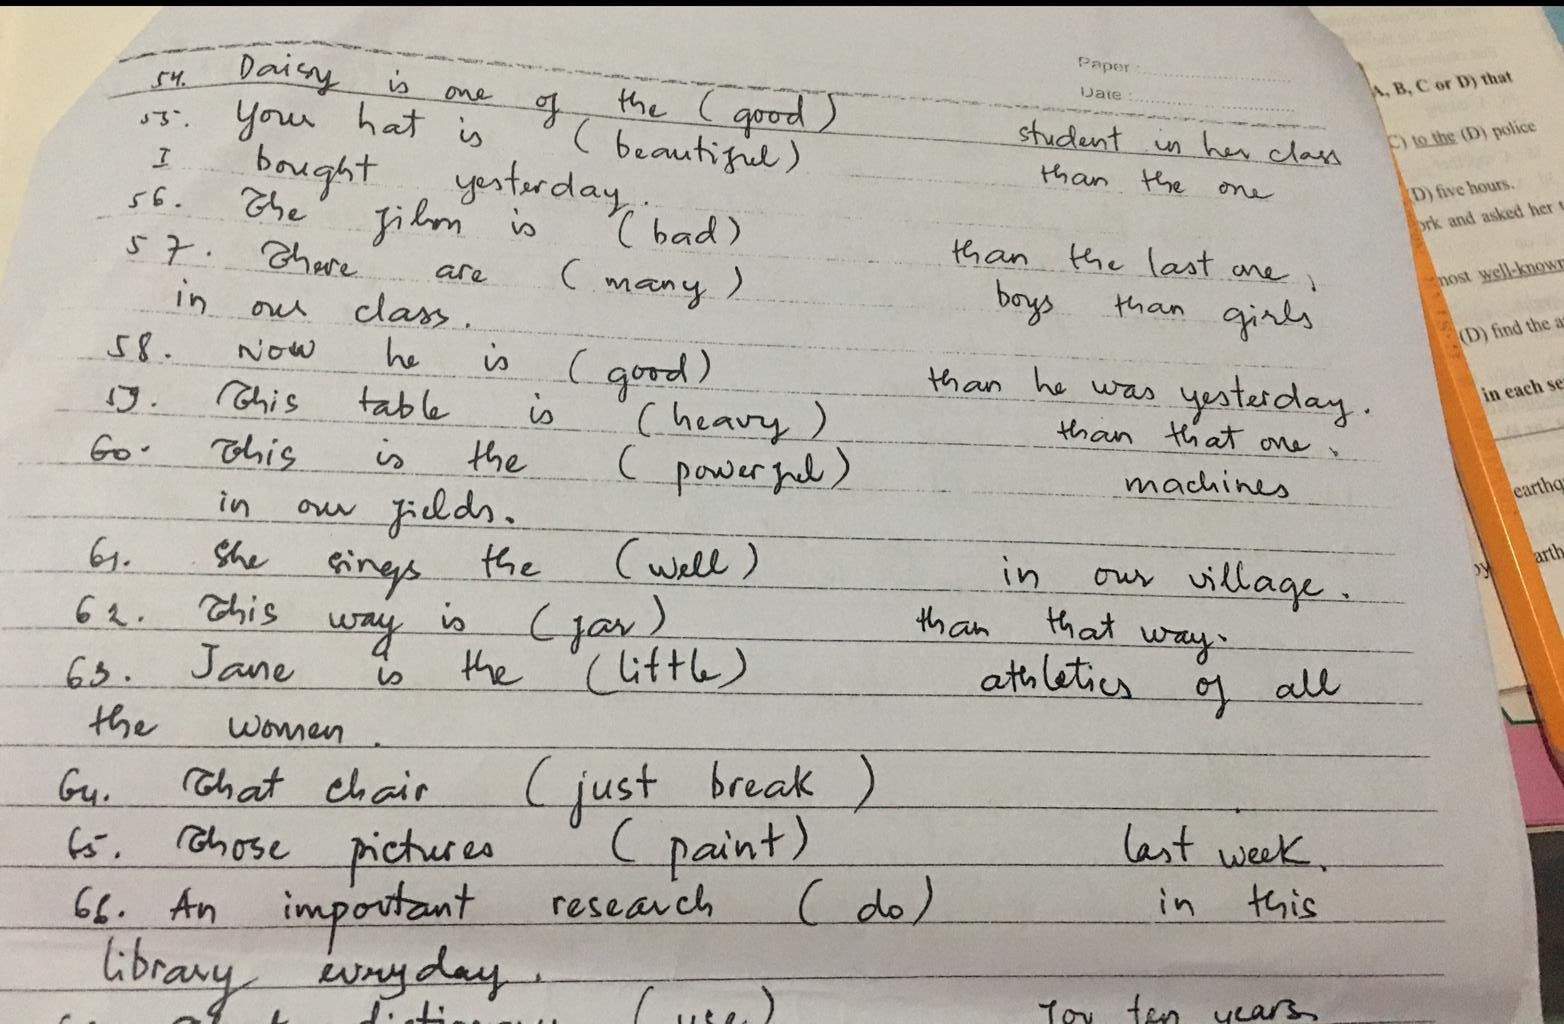 Paper :
Date :
54. Daisy is one of the (good) student in her class
55. Your hat is (beautiful) than the one
I bought yesterday.
56. The film is (bad) than the last one.
57. There are (many) boys than girls
in our class.
58. Now he is (good) than he was yesterday.
59. This table is (heavy) than that one.
60. This is the (powerful) machines
in our fields.
61. She sings the (well) in our village.
62. This way is (far) than that way.
63. Jane is the (little) athletics of all
the women.
64. That chair (just break)
65. Those pictures (paint) last week.
66. An important research (do) in this
library everyday.
(use) for ten years
A, B, C or D) that
C) to the (D) police
D) five hours.
ork and asked her
most well-known
(D) find the a
in each se
earthq
arth